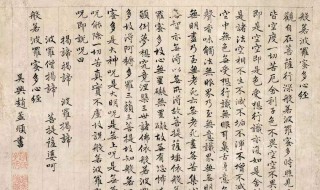 般若波羅蜜多心經
觀自在菩薩行深般若波羅蜜多時照見五蘊
皆空度一切苦厄舍利子色不異空空不異色色
即是空空即是色受想行識亦復如是舍利子
是諸法空相不生不滅不垢不淨不增不減是故
空中無色無受想行識無眼耳鼻舌身意無色
聲香味觸法無眼界乃至無意識界無無明亦
無無明盡乃至無老死亦無老死盡無苦集滅道
無智亦無得以無所得故菩提薩埵依般若波
羅蜜多故心無罣礙無罣礙故無有恐怖遠離
顛倒夢想究竟涅槃三世諸佛依般若波羅蜜
多故得阿耨多羅三藐三菩提故知般若波羅
蜜多是大神呪是大明呪是無上呪是無等等
呪能除一切苦真實不虛故說般若波羅蜜多
呪即說呪曰
揭諦揭諦 波羅揭諦
波羅僧揭諦 菩提薩婆訶
般若波羅蜜多心經
吳興趙孟頫書